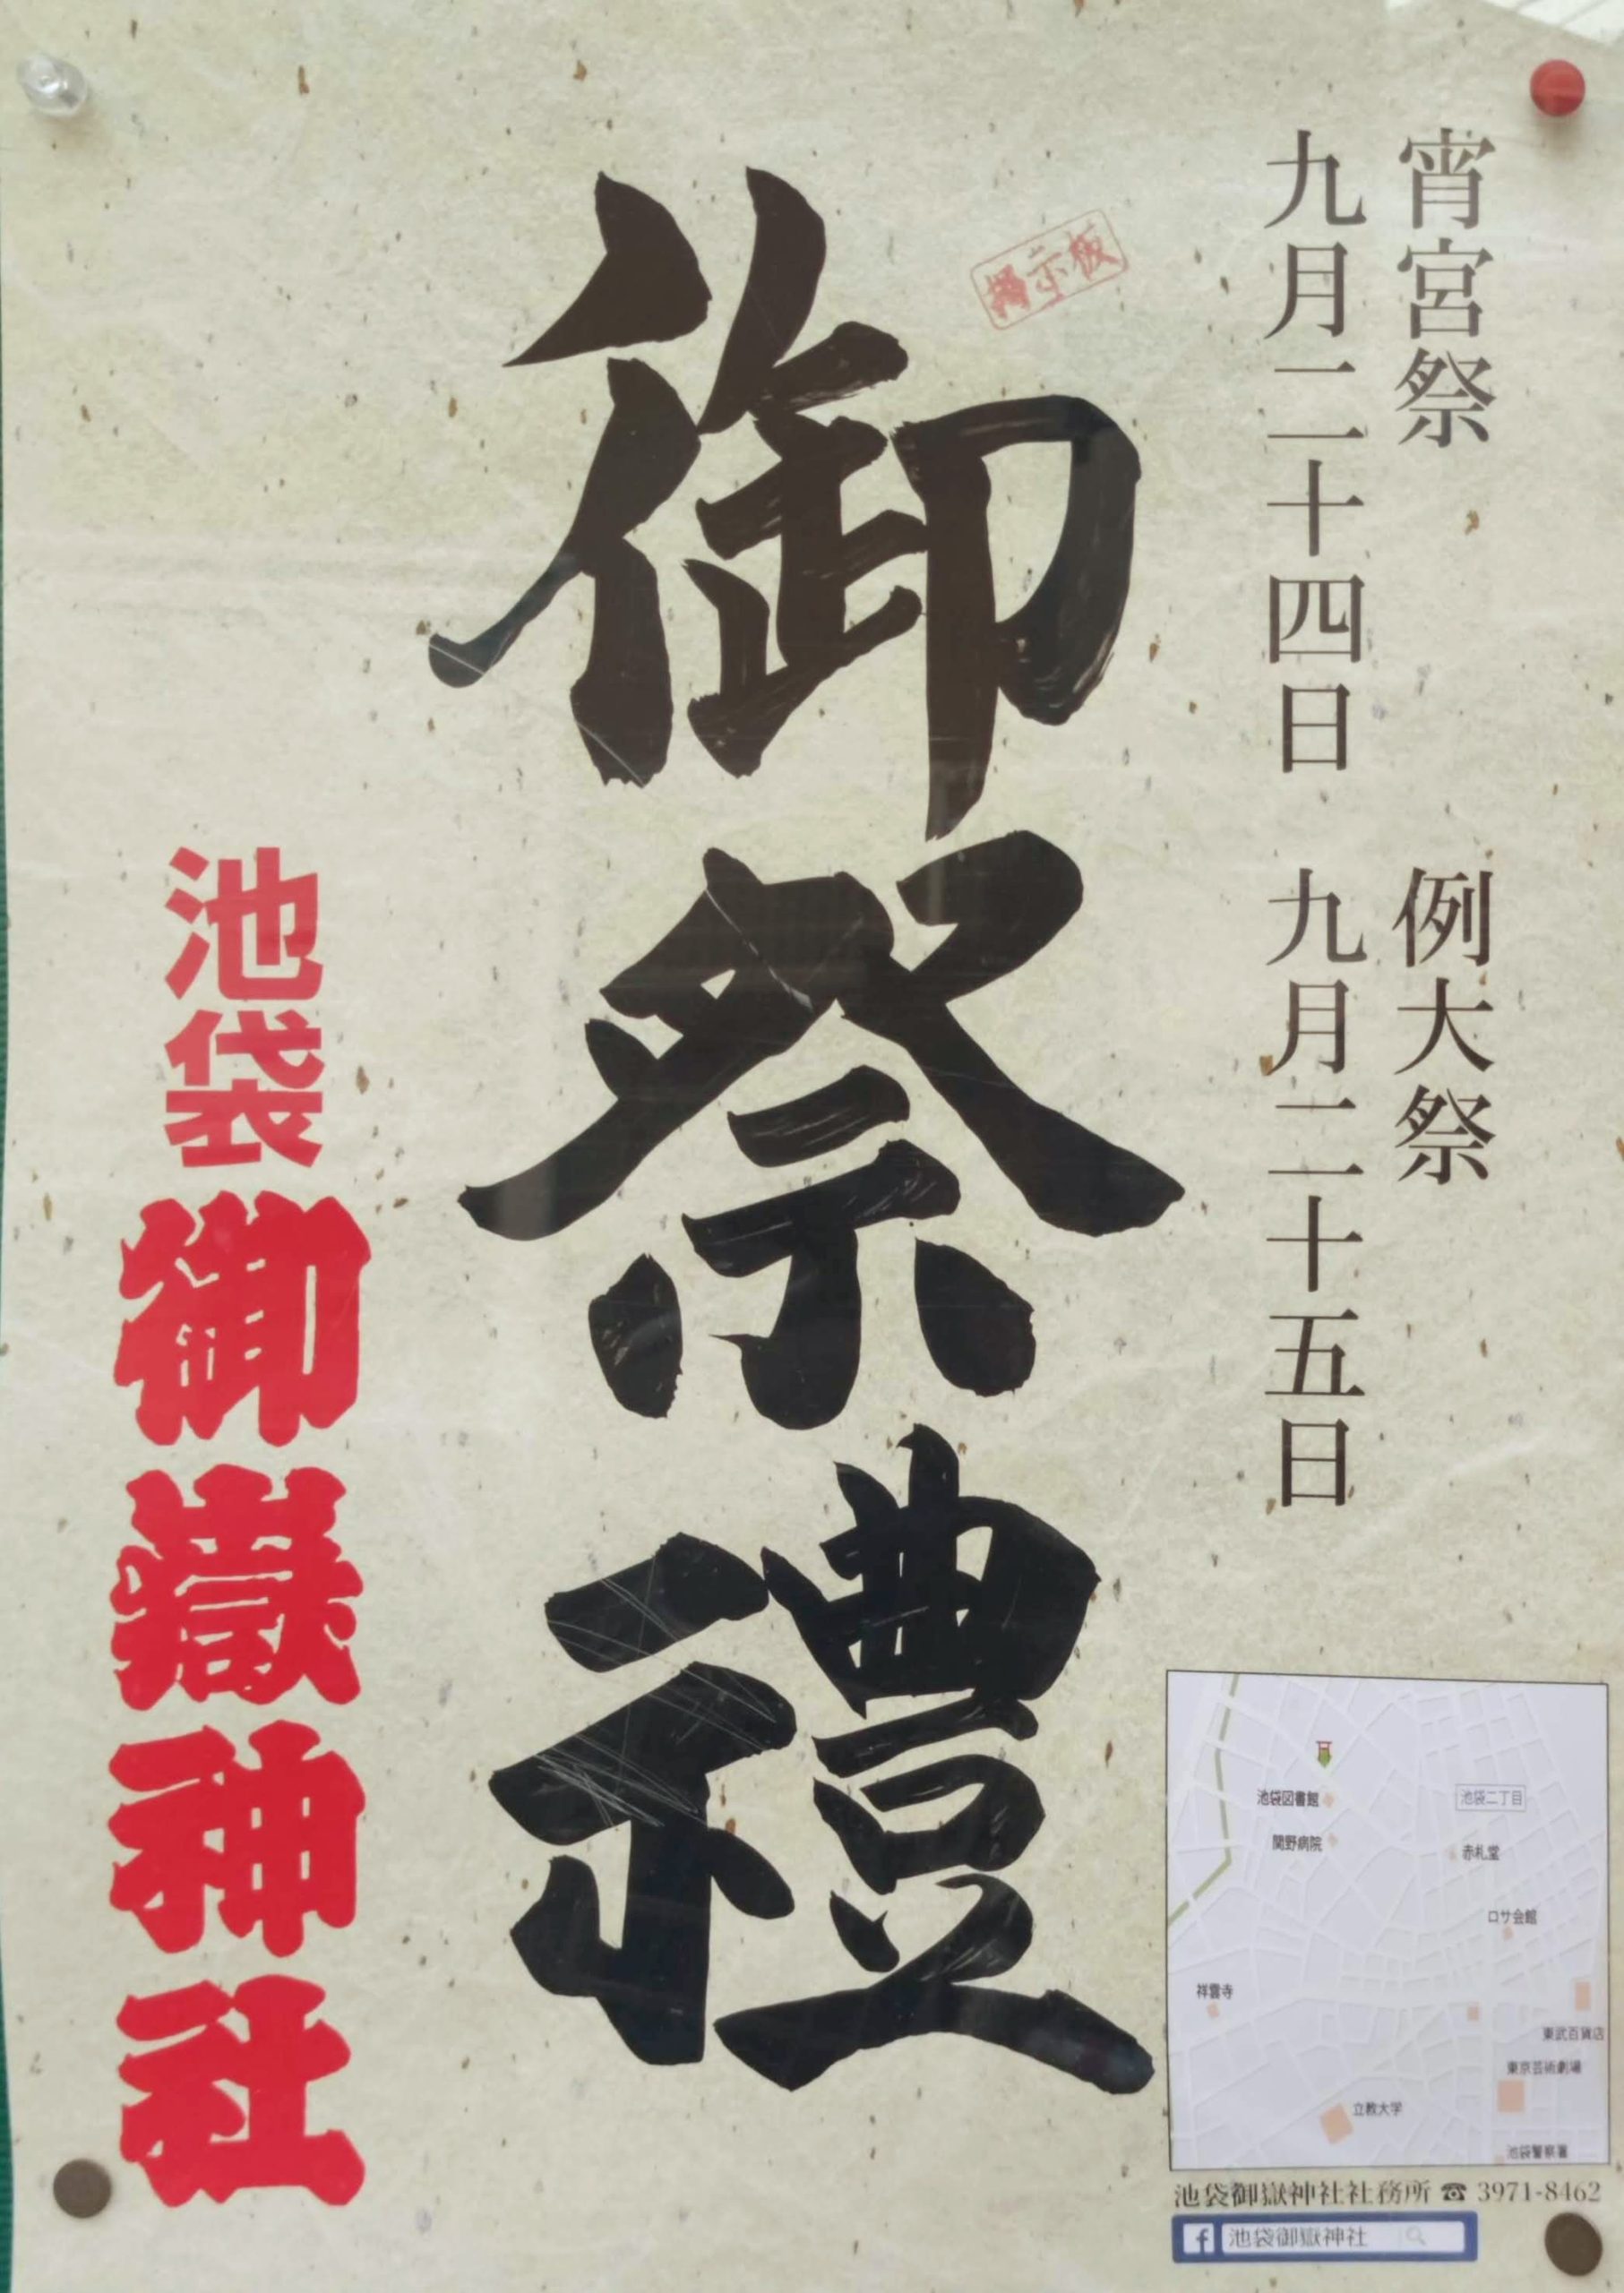 宵宮祭
九月二十四日
例大祭
九月二十五日
掲示板
御祭禮
池袋御嶽神社
池袋図書館
池袋二丁目
関野病院
赤札堂
ロサ会館
祥雲寺
東武百貨店
東京芸術劇場
立教大学
池袋警察署
池袋御嶽神社社務所 ☎ 3971-8462
f 池袋御嶽神社